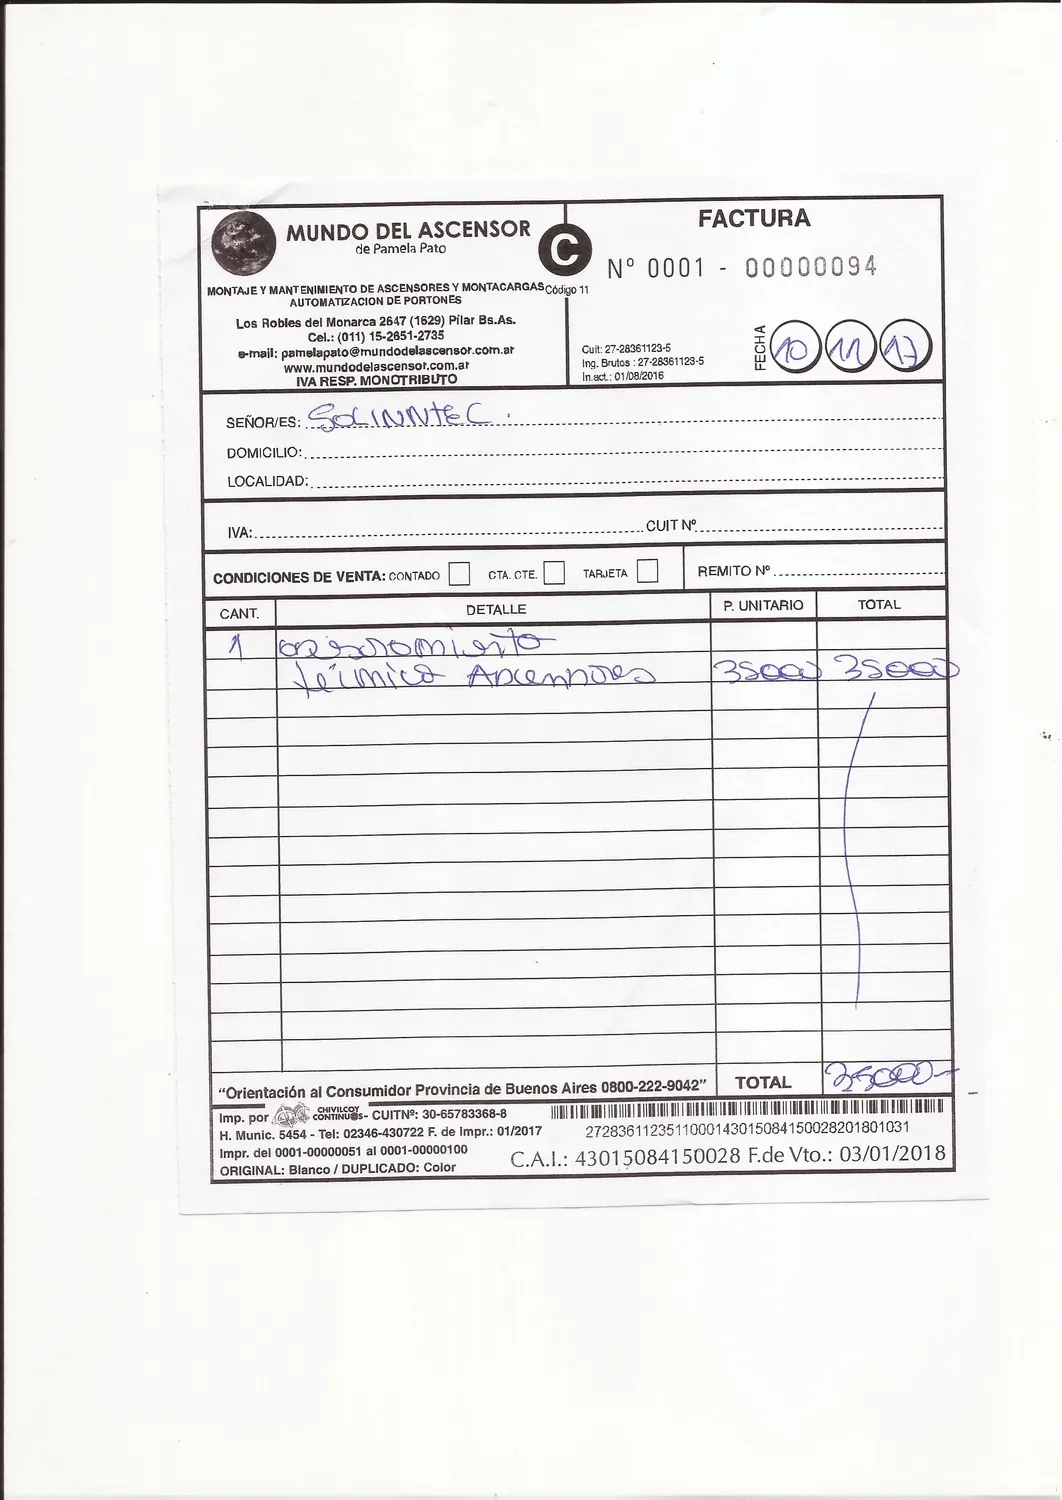 MUNDO DEL ASCENSOR
de Pamela Pato
MONTAJE Y MANTENIMIENTO DE ASCENSORES Y MONTACARGAS
AUTOMATIZACION DE PORTONES
Los Robles del Monarca 2647 (1629) Pilar Bs.As.
Cel.: (011) 15-2651-2735
e-mail: pamelapato@mundodelascensor.com.ar
www.mundodelascensor.com.ar
IVA RESP. MONOTRIBUTO
C
Código 11
FACTURA
Nº 0001 - 00000094
FECHA 10 11 17
Cuit: 27-28361123-5
Ing. Brutos : 27-28361123-5
In.act.: 01/08/2016
SEÑOR/ES: SOLINNTEC.
DOMICILIO:
LOCALIDAD:
IVA: CUIT Nº
CONDICIONES DE VENTA: CONTADO CTA. CTE. TARJETA REMITO Nº
CANT. DETALLE P. UNITARIO TOTAL
1 asesoramiento
técnico Ascensores 35000 35000
"Orientación al Consumidor Provincia de Buenos Aires 0800-222-9042" TOTAL 35000-
Imp. por CHIVILCOY CONTINUOS - CUITNº: 30-65783368-8
H. Munic. 5454 - Tel: 02346-430722 F. de Impr.: 01/2017
Impr. del 0001-00000051 al 0001-00000100
ORIGINAL: Blanco / DUPLICADO: Color
2728361123511000143015084150028201801031
C.A.I.: 43015084150028 F.de Vto.: 03/01/2018